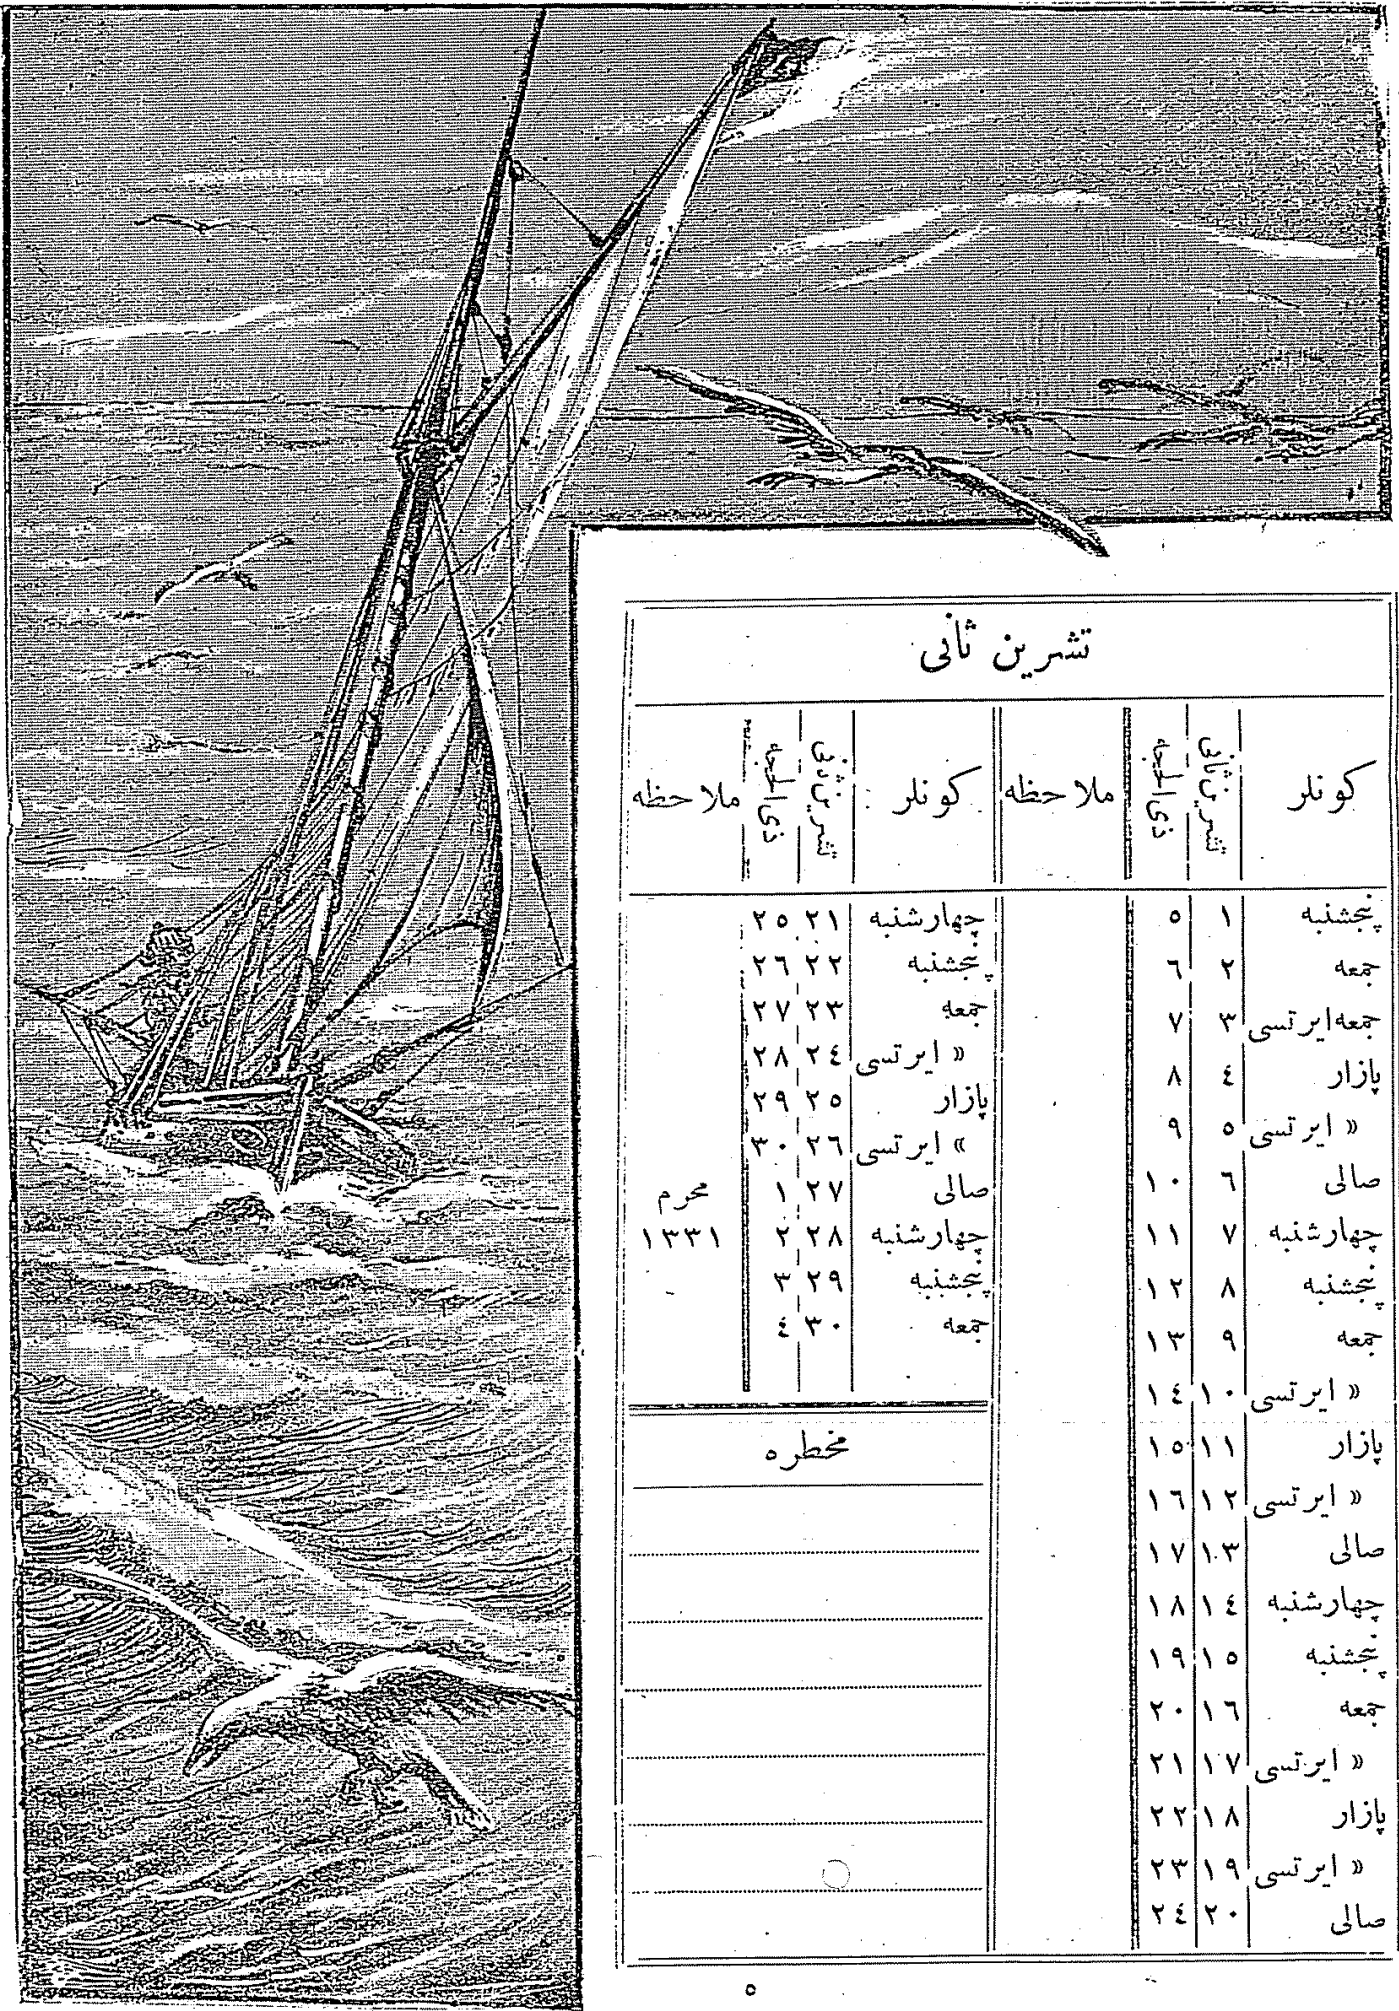 تشرین ثانی
كونلر تشرین ثانی ذی الحجه ملاحظه
پنجشنبه ١ ٥
جمعه ٢ ٦
جمعه ایرتسی ٣ ٧
پازار ٤ ٨
« ایرتسی ٥ ٩
صالی ٦ ١٠
چهارشنبه ٧ ١١
پنجشنبه ٨ ١٢
جمعه ٩ ١٣
« ایرتسی ١٠ ١٤
پازار ١١ ١٥
« ایرتسی ١٢ ١٦
صالی ١٣ ١٧
چهارشنبه ١٤ ١٨
پنجشنبه ١٥ ١٩
جمعه ١٦ ٢٠
« ایرتسی ١٧ ٢١
پازار ١٨ ٢٢
« ایرتسی ١٩ ٢٣
صالی ٢٠ ٢٤
كونلر تشرین ثانی ذی الحجه ملاحظه
چهارشنبه ٢١ ٢٥
پنجشنبه ٢٢ ٢٦
جمعه ٢٣ ٢٧
« ایرتسی ٢٤ ٢٨
پازار ٢٥ ٢٩
« ایرتسی ٢٦ ٣٠
صالی ٢٧ ١ محرم
چهارشنبه ٢٨ ٢ ١٣٣١
پنجشنبه ٢٩ ٣
جمعه ٣٠ ٤
مخطره
٥